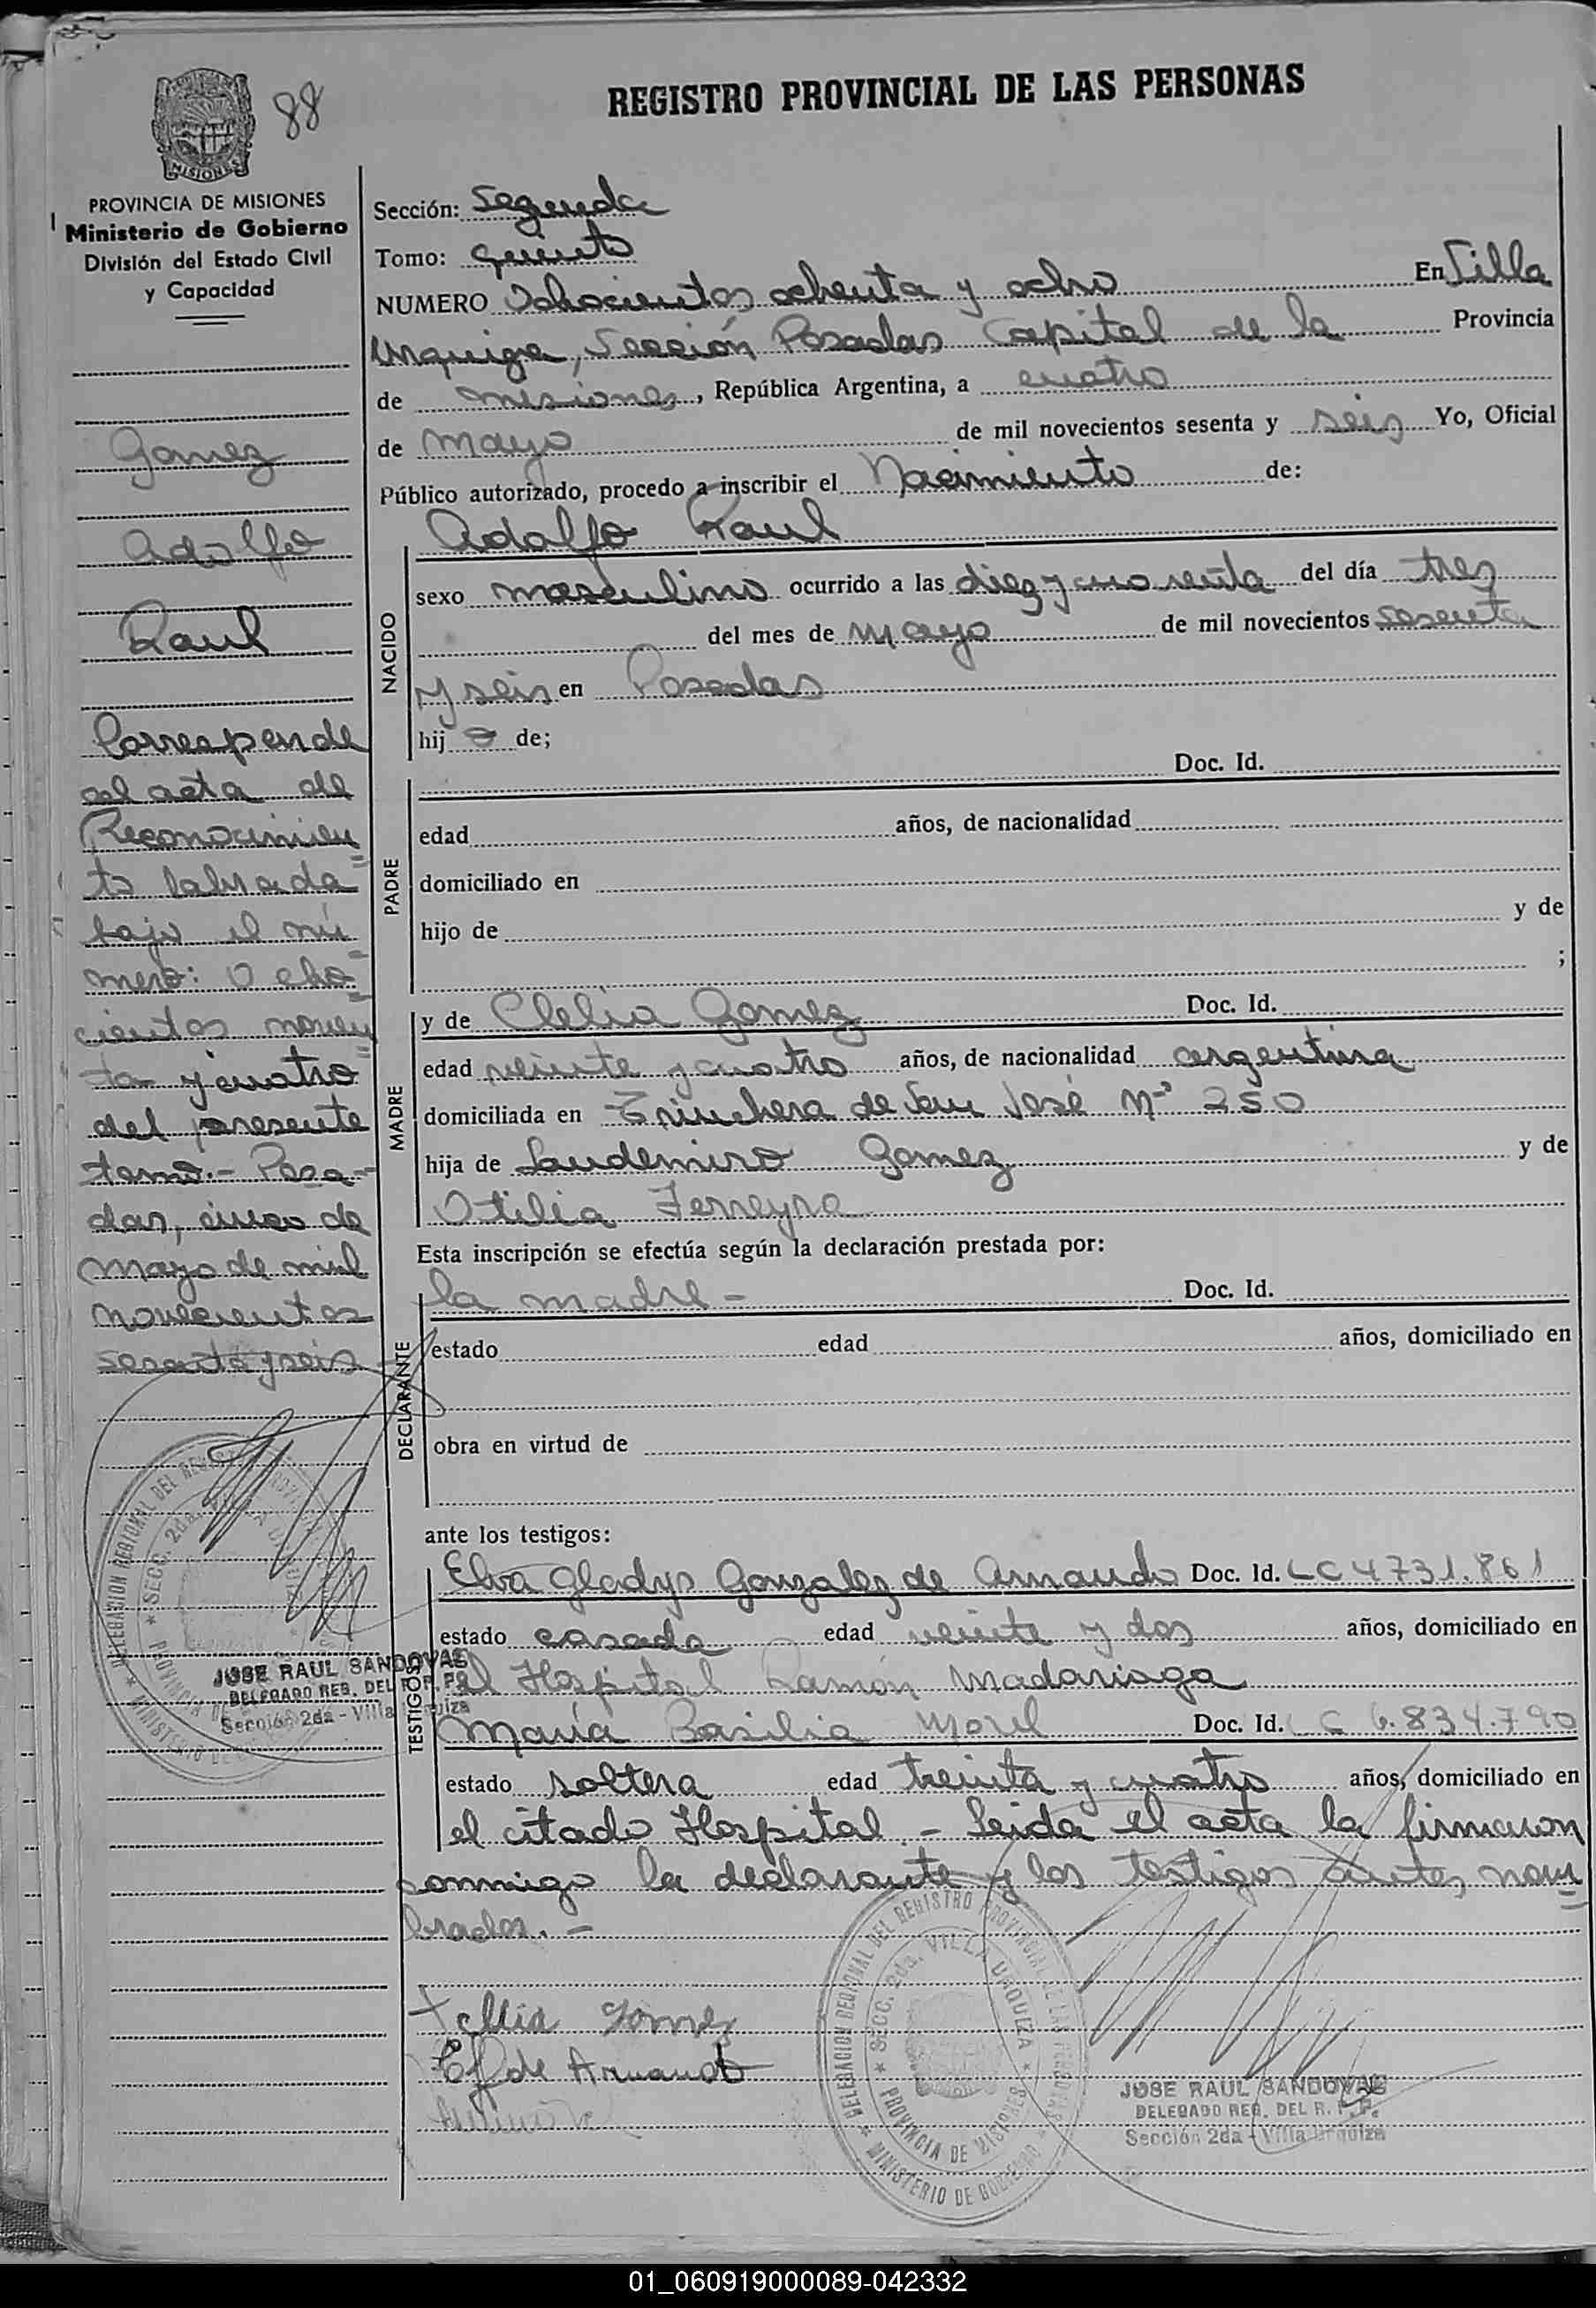 88
REGISTRO PROVINCIAL DE LAS PERSONAS
MISIONES
PROVINCIA DE MISIONES
Ministerio de Gobierno
División del Estado Civil
y Capacidad
Gomez
Adolfo
Raul
Corresponde
al acta de
Reconocimien
to labrada
bajo el nú
mero: Ocho
cientos noven
ta y cuatro
del presente
tomo.- Posa-
das, cinco de
mayo de mil
novecientos
sesenta y seis
JOSE RAUL SANDOVAL
DELEGADO REG. DEL R. P. P.
Sección 2da - Villa Urquiza
Sección: Segunda
Tomo: quinto
NUMERO Ochocientos ochenta y ocho En Villa
Urquiza, Sección Posadas Capital de la Provincia
de misiones, República Argentina, a cuatro
de mayo de mil novecientos sesenta y seis Yo, Oficial
Público autorizado, procedo a inscribir el Nacimiento de:
Adolfo Raul
NACIDO
sexo masculino ocurrido a las diez y cuarenta del día tres
del mes de mayo de mil novecientos sesenta
y seis en Posadas
hij o de;
Doc. Id.
PADRE
edad años, de nacionalidad
domiciliado en
hijo de y de
;
MADRE
y de Clelia Gomez Doc. Id.
edad veinte y cuatro años, de nacionalidad argentina
domiciliada en Trinchera de San José Nº 250
hija de Laudemiro Gomez y de
Otilia Ferreyra
Esta inscripción se efectúa según la declaración prestada por:
la madre - Doc. Id.
DECLARANTE
estado edad años, domiciliado en
obra en virtud de
ante los testigos:
TESTIGOS
Elva Gladys Gonzalez de Arnando Doc. Id. LC 4731.861
estado casada edad veinte y dos años, domiciliado en
el Hospital Ramón Madariaga
María Basilia Morel Doc. Id. LC 6.834.790
estado soltera edad treinta y cuatro años, domiciliado en
el citado Hospital.- Leida el acta la firmaron
conmigo la declarante y los testigos antes nom
brados.-
Clelia Gomez
EG de Arnando
DELEGACION REGIONAL DEL REGISTRO PROVINCIAL DE LAS PERSONAS
SECC. 2da. VILLA URQUIZA
PROVINCIA DE MISIONES
MINISTERIO DE GOBIERNO
JOSE RAUL SANDOVAL
DELEGADO REG. DEL R. P. P.
Sección 2da - Villa Urquiza
01_060919000089-042332